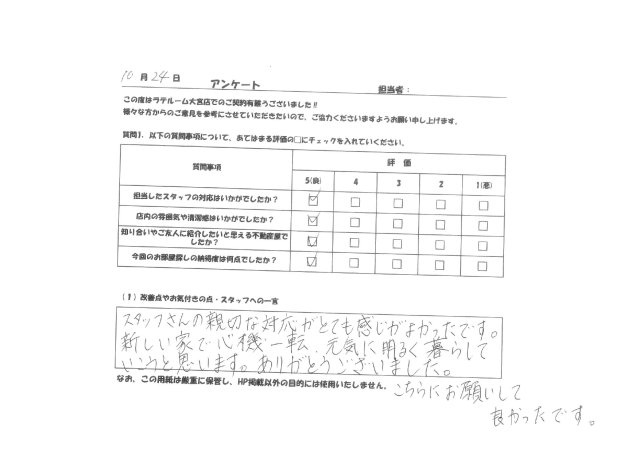 10月24日 アンケート 担当者：
この度はラテルーム大宮店でのご契約有難うございました!!
様々な方からのご意見を参考にさせていただきたいので、ご協力くださいますようお願い申し上げます。
質問1、以下の質問事項について、あてはまる評価の□にチェックを入れていください。
質問事項 評価
5(良) 4 3 2 1(悪)
担当したスタッフの対応はいかがでしたか？
店内の雰囲気や清潔感はいかがでしたか？
知り合いやご友人に紹介したいと思える不動産屋で
したか？
今回のお部屋探しの納得度は何点でしたか？
(1) 改善点やお気付きの点・スタッフへの一言
スタッフさんの親切な対応がとても感じがよかったです。
新しい家で心機一転、元気に明るく暮らして
いこうと思います。ありがとうございました。
なお、この用紙は厳重に保管し、HP掲載以外の目的には使用いたしません。
こちらにお願いして
良かったです。